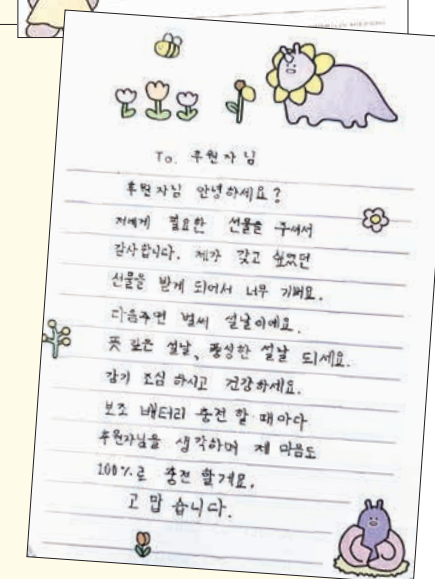 To. 후원자님
후원자님 안녕하세요?
저에게 필요한 선물을 주셔서
감사합니다. 제가 갖고 싶었던
선물을 받게 되어서 너무 기뻐요.
다음주면 벌써 설날이에요.
뜻 깊은 설날, 풍성한 설날 되세요.
감기 조심 하시고 건강하세요.
보조 배터리 충전 할 때마다
후원자님을 생각하며 제 마음도
100%로 충전 할게요.
고맙습니다.